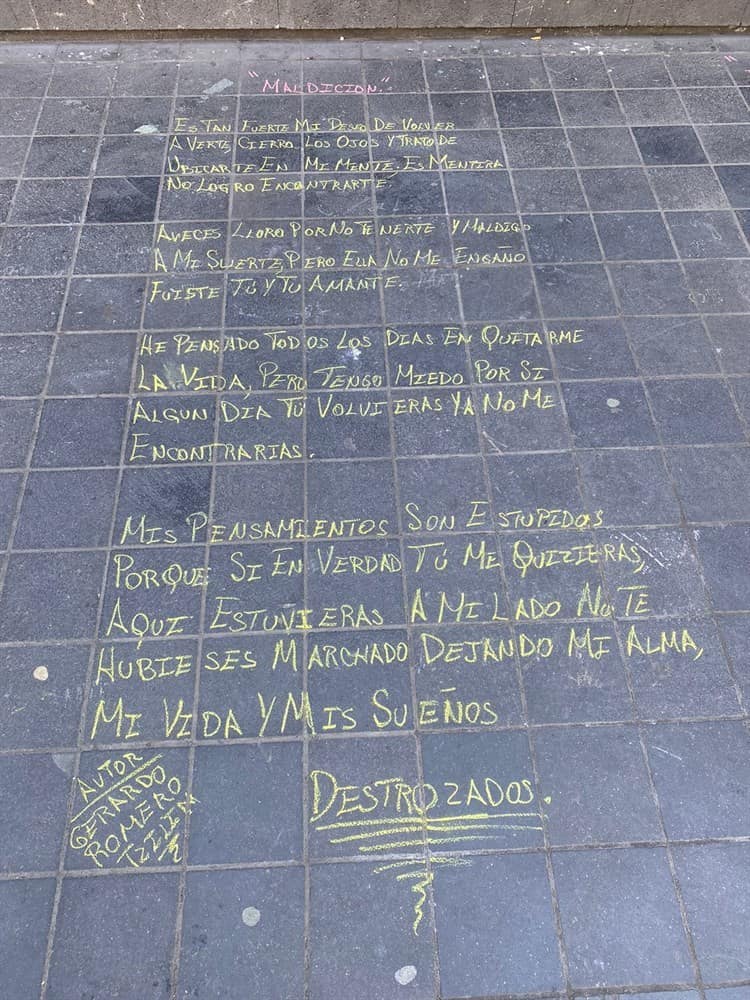 "MALDICION."
ES TAN FUERTE MI DESEO DE VOLVER
A VERTE, CIERRO LOS OJOS Y TRATO DE
UBICARTE EN MI MENTE, ES MENTIRA
NO LOGRO ENCONTRARTE.
AVECES LLORO POR NO TENERTE Y MALDIGO
A MI SUERTE, PERO ELLA NO ME ENGAÑO
FUISTE TÚ Y TU AMANTE.
HE PENSADO TODOS LOS DIAS EN QUITARME
LA VIDA, PERO TENGO MIEDO POR SI
ALGUN DIA TÚ VOLVIERAS YA NO ME
ENCONTRARIAS.
MIS PENSAMIENTOS SON ESTUPIDOS
PORQUE SI EN VERDAD TÚ ME QUIZIERAS,
AQUI ESTUVIERAS A MI LADO NO TE
HUBIESES MARCHADO DEJANDO MI ALMA,
MI VIDA Y MIS SUEÑOS
DESTROZADOS.
AUTOR
GERARDO
ROMERO